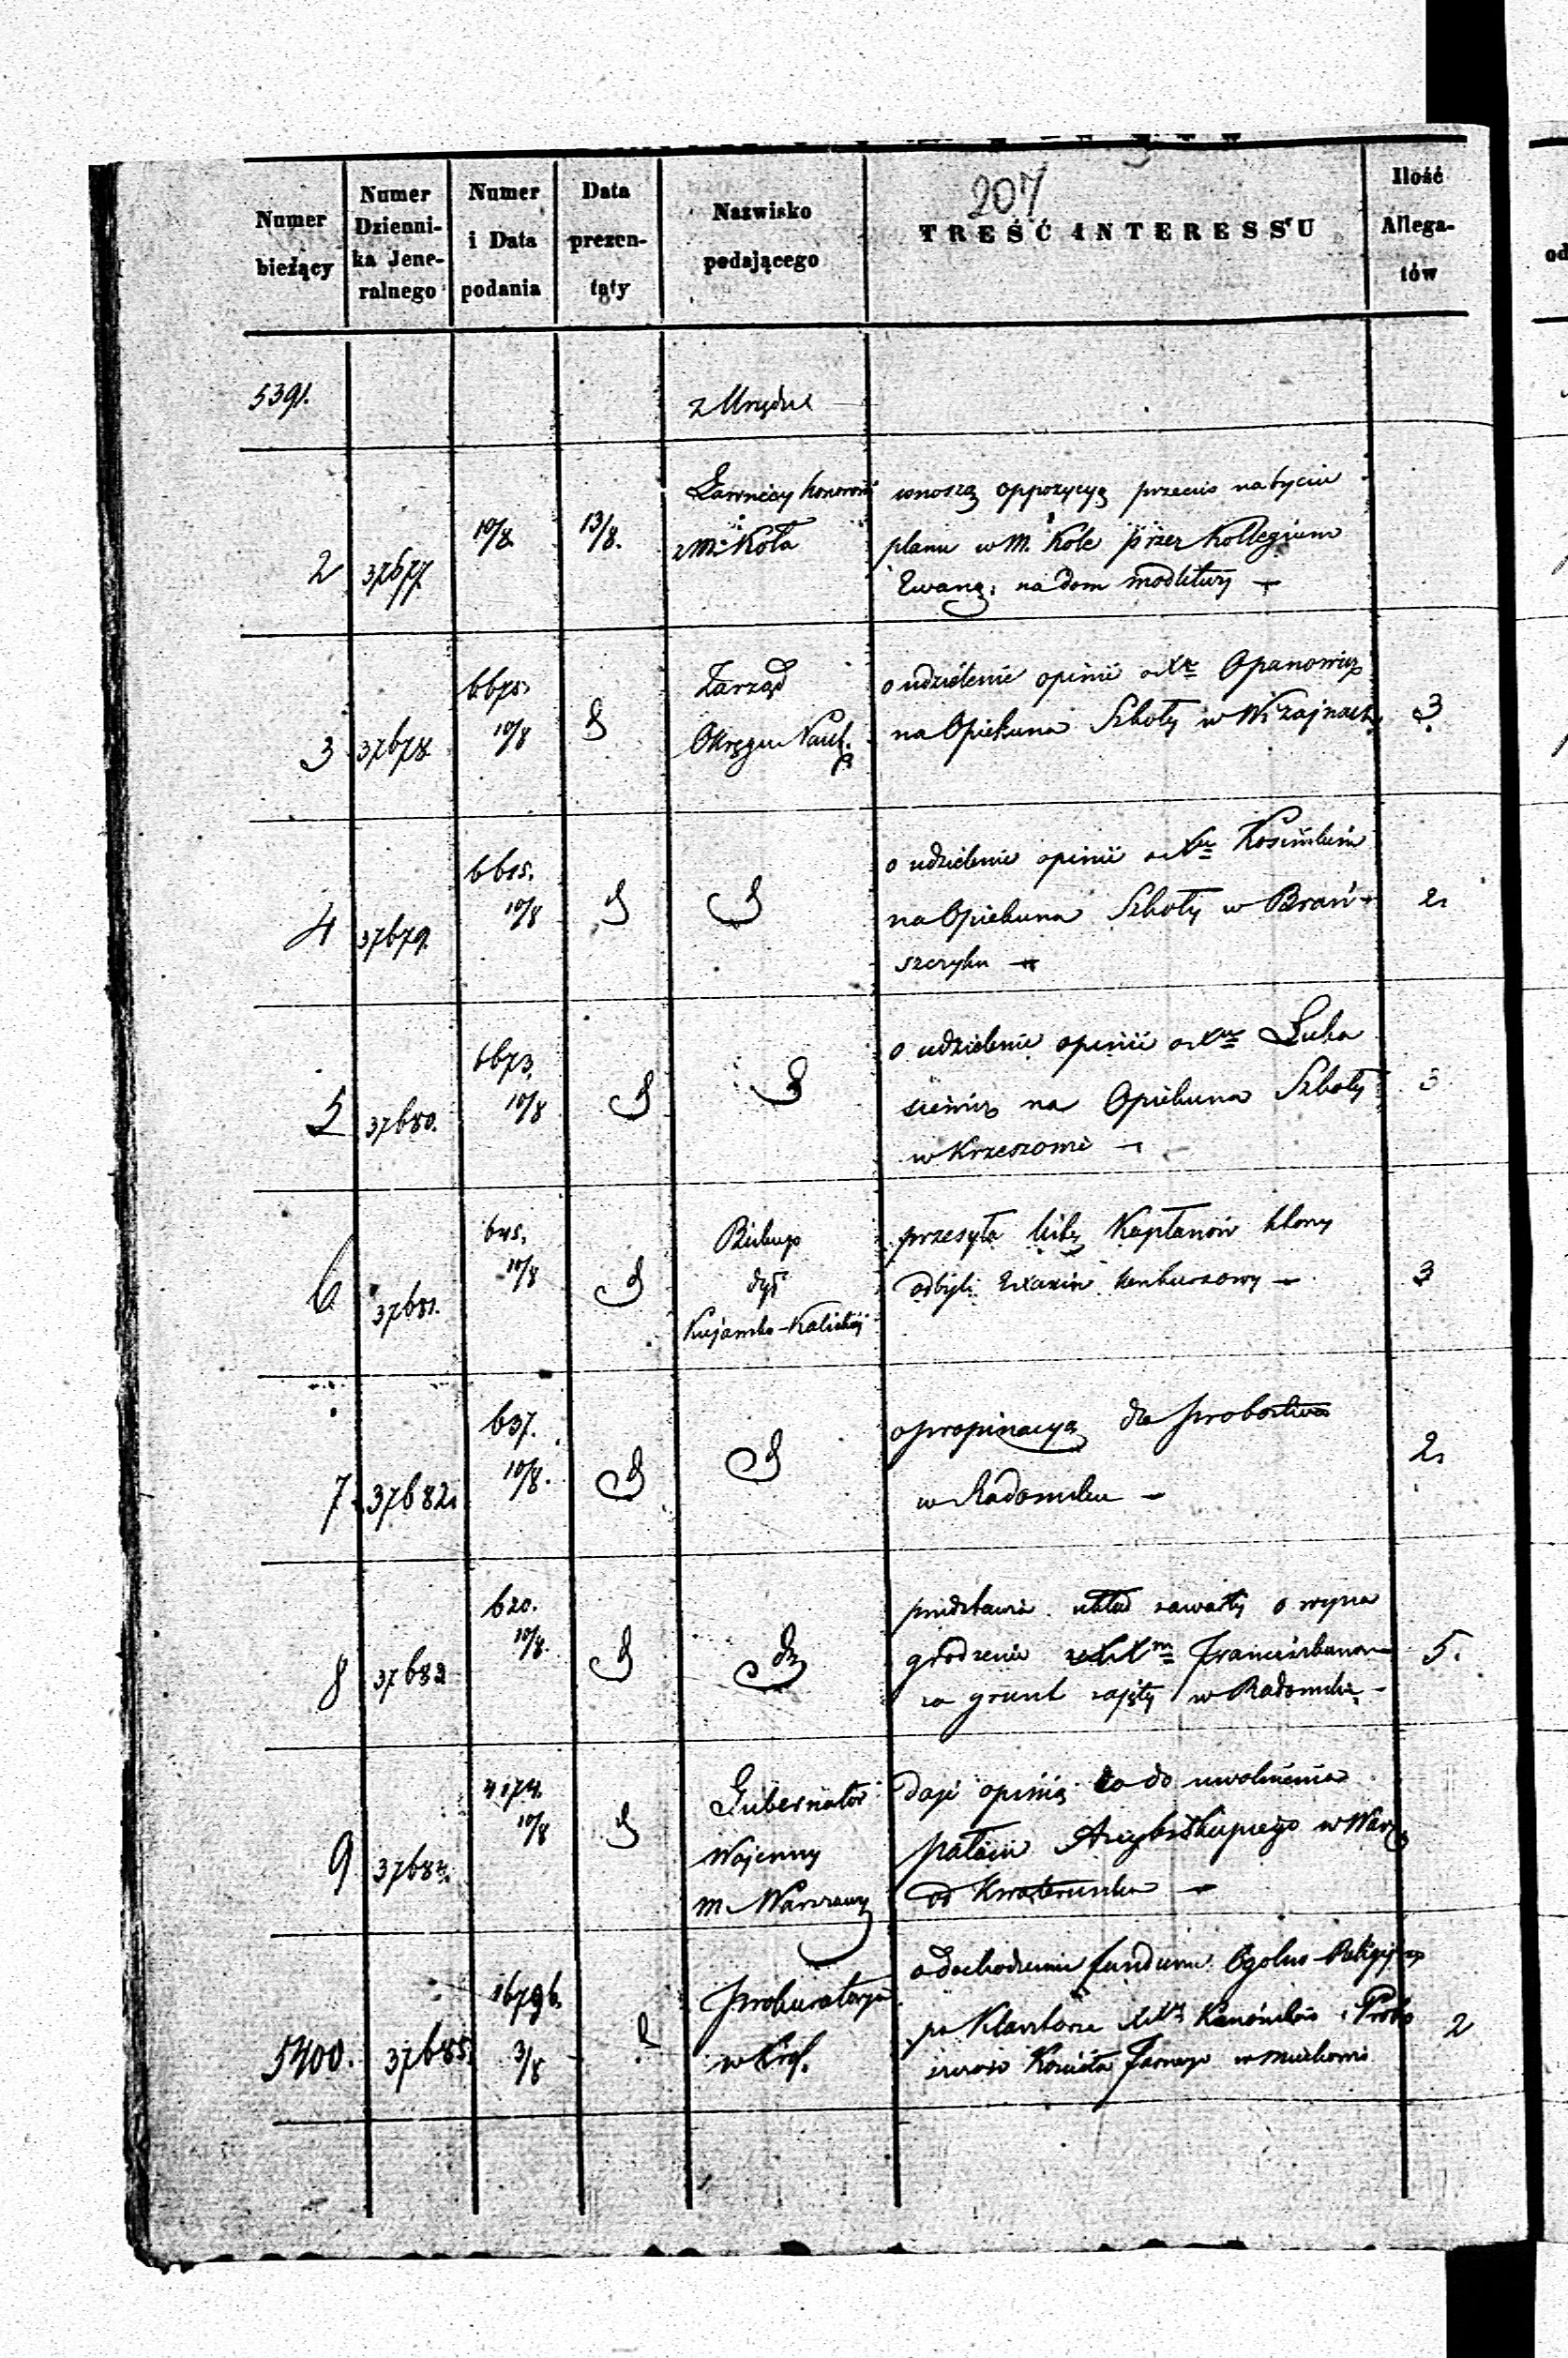 207
Numer bieżący
Numer Dzienni-ka Jene-ralnego
Numer i Data podania
Data prezen-taty
Nazwisko podającego
TREŚĆ INTERESSU
Ilość Allega-tów
5391.
z Urzędu
2 37677 10/8. 13/8.
Ławnicy honorowi
z m. Koła
wnoszą oppozycyą przeciw nabyciu
planu w M. Kole przez Kollegium
Ewang: na dom modlitwy —
3 37678 6675. 10/8 d
Zarząd
Okręgu Nauk.
o udzielenie opinii o Xu Opanowicz
na Opiekuna Szkoły w Wiżajnach
3
4 37679. 6615. 10/8 d d
o udzielenie opinii o Xu
na Opiekuna Szkoły w Brań-
szczyku —
2.
5 37680. 6673. 10/8 d d
o udzielenie opinii o Xu Łuka
siewicz na Opiekuna Szkoły
w Krzeszowie —
3
6 37681. 645. 10/8 d
Biskup
dyś
Kujawsko-Kaliskiej
przesyła listę Kapłanów którzy
odbyli Exaxin konkursowy —
3
7. 37682. 637. 10/8. d d
o propinacyą dla probostwa
w Radomsku —
2.
8 37683 620. 10/8. d do
przedstawia układ zawarty o wyna
grodzenie XXm Franciszkanom
za grunt zajęty w Radomsku —
5.
9 37684. 4174. 10/8 d
Gubernator
Wojenny
m. Warszawy
daje opinią co do uwolnienia
pałacu Arcybiskupiego w Warsz
od Kwaterunku —
5400. 37685. 16796. 3/8 d
Prokuratorya
w Król.
o dochodzeniu funduszu Ogólno-Religijnego
po Klasztorze XXów Kanoników i Probo
szczów Kościoła Farnego w Miechowie
2